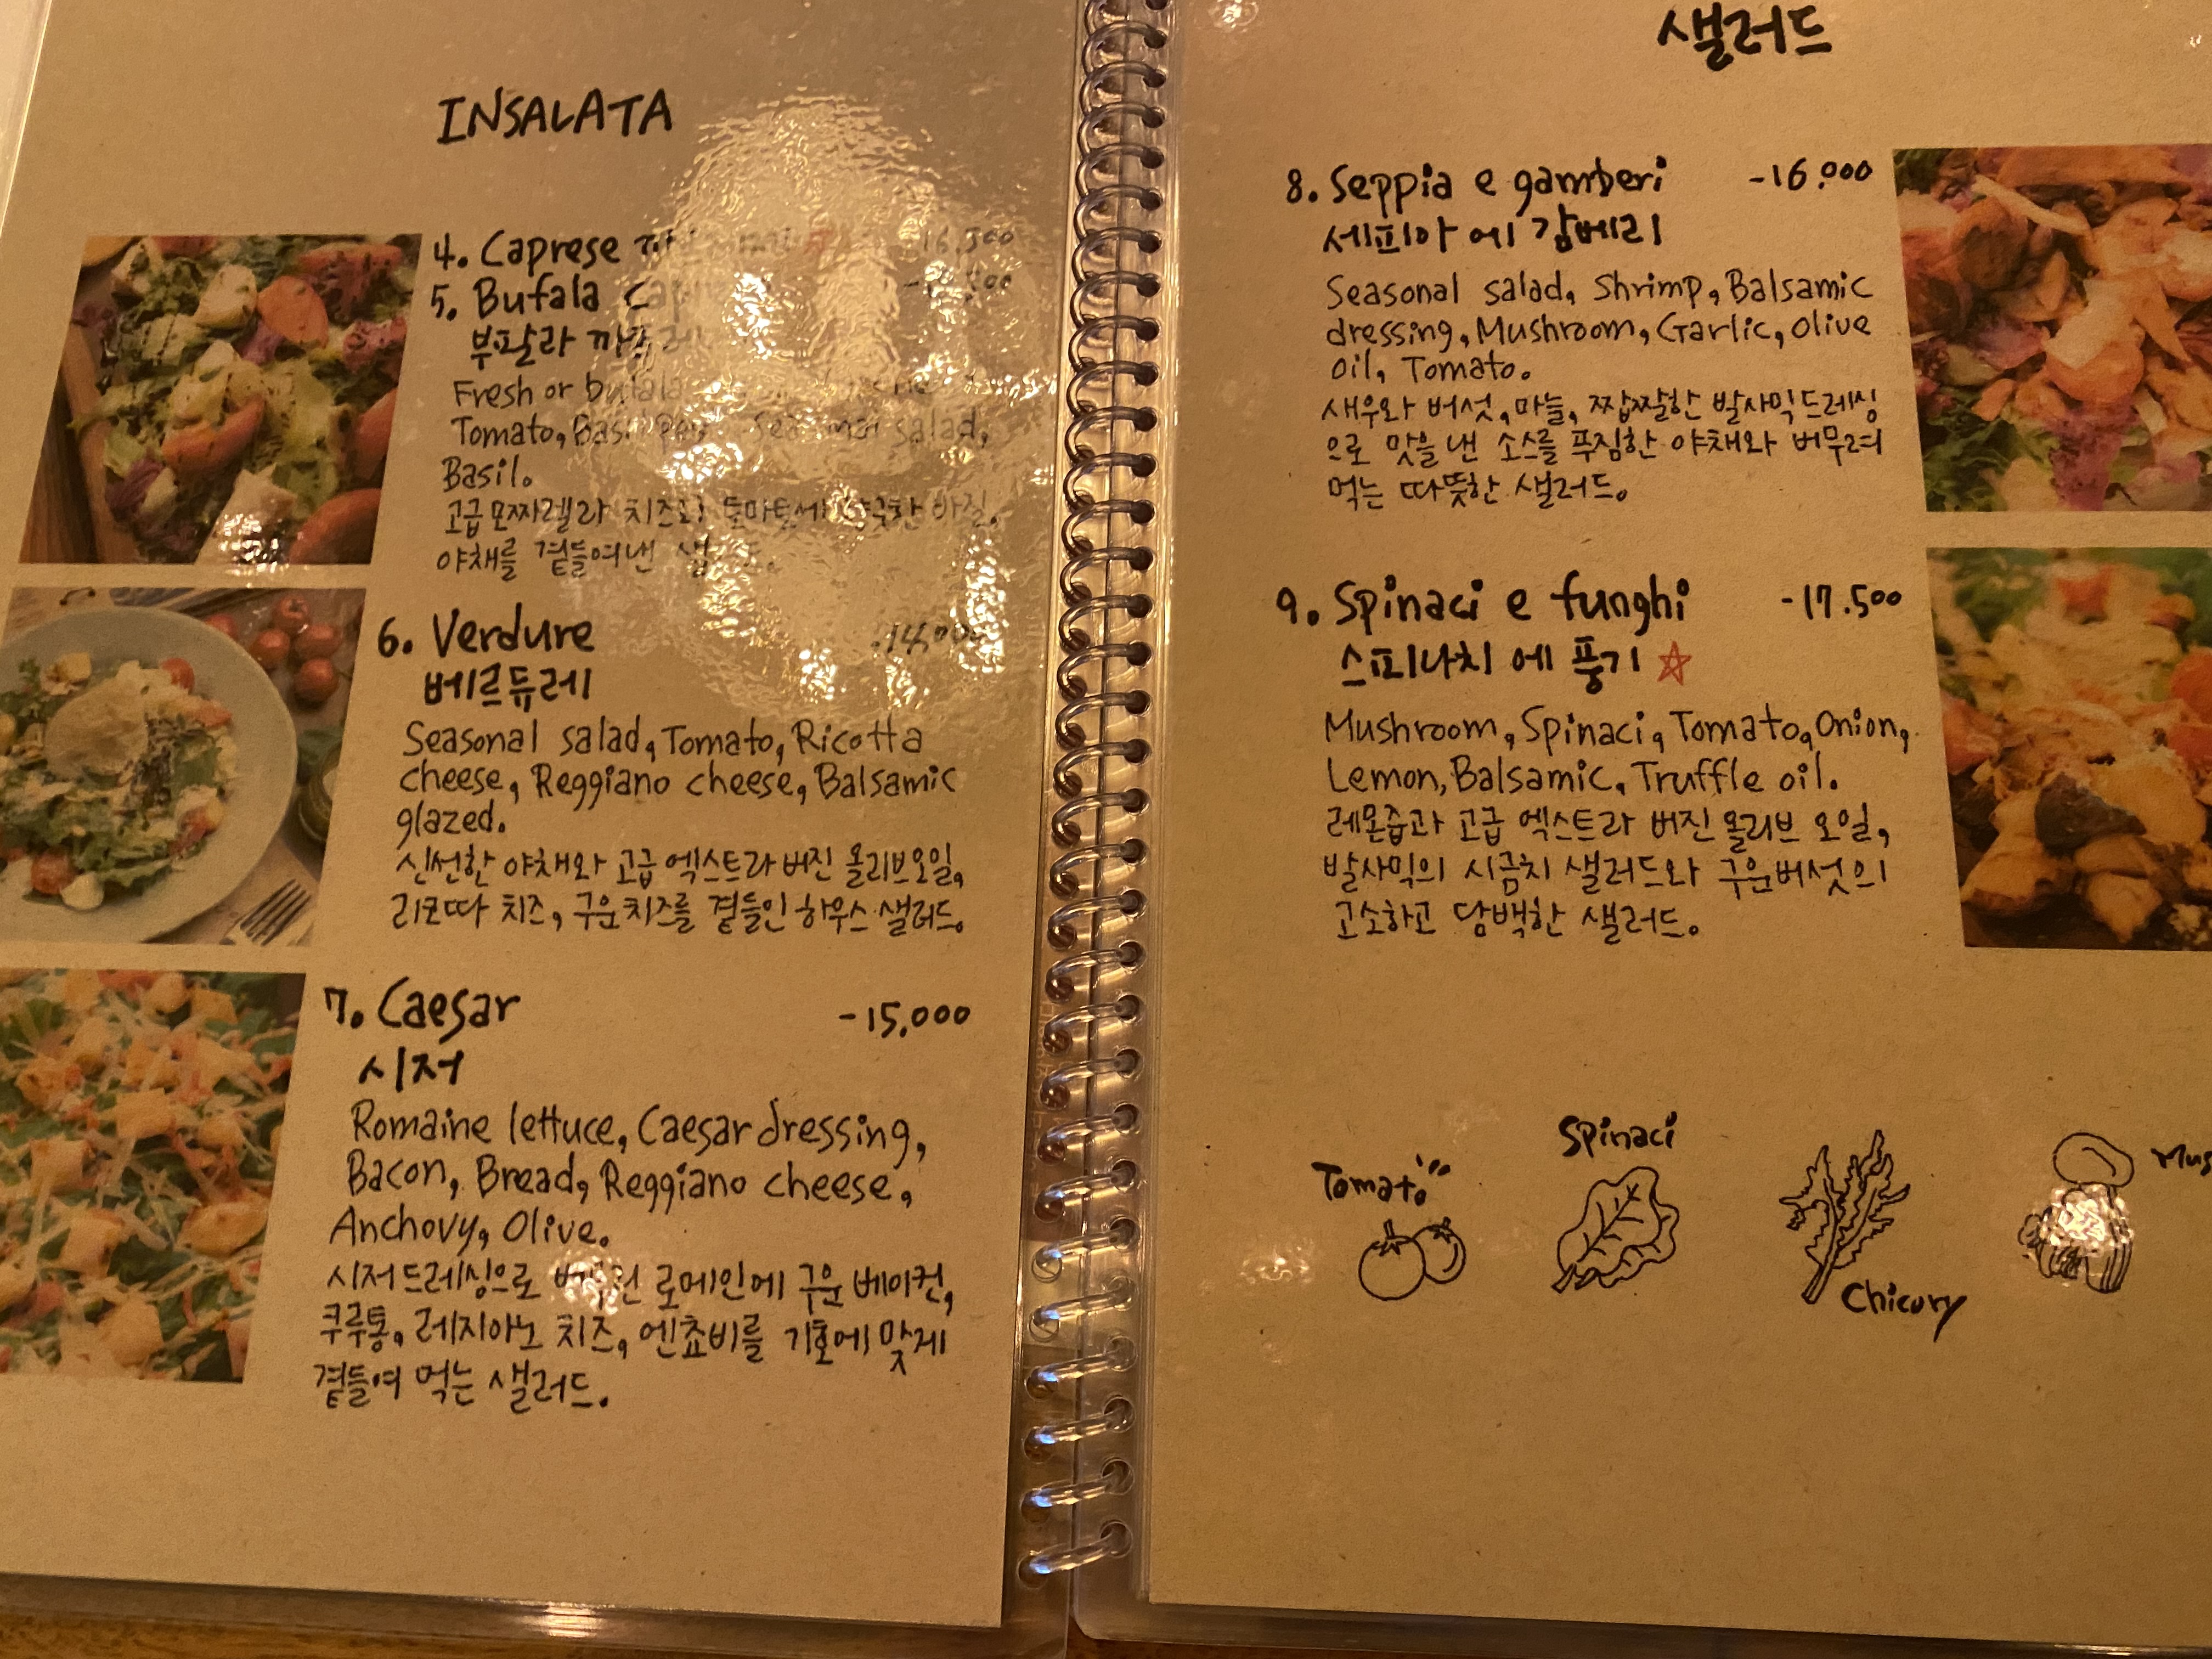 INSALATA
4. Caprese
5. Bufala
부팔라
Fresh or bufala
Tomato, Basil Seasonal salad,
Basil.
고급 모짜렐라 치즈와 토마토에 바질,
야채를 곁들여낸
6. Verdure -14,000
베르듀레
Seasonal salad, Tomato, Ricotta
cheese, Reggiano cheese, Balsamic
glazed.
신선한 야채와 고급 엑스트라 버진 올리브오일,
리코따 치즈, 구운 치즈를 곁들인 하우스 샐러드.
7. Caesar -15.000
시저
Romaine lettuce, Caesar dressing,
Bacon, Bread, Reggiano cheese,
Anchovy, Olive.
시저드레싱으로 로메인에 구운 베이컨,
쿠루통, 레지아노 치즈, 엔쵸비를 기호에 맞게
곁들여 먹는 샐러드.
샐러드
8. Seppia e gamberi -16.000
세피아 에 감베리
Seasonal salad, Shrimp, Balsamic
dressing, Mushroom, Garlic, Olive
oil, Tomato.
새우와 버섯, 마늘, 짭짤한 발사믹드레싱
으로 맛을 낸 소스를 푸짐한 야채와 버무려
먹는 따뜻한 샐러드.
9. Spinaci e funghi -17.500
스피나치 에 풍기 ☆
Mushroom, Spinaci, Tomato, Onion,
Lemon, Balsamic, Truffle oil.
레몬즙과 고급 엑스트라 버진 올리브 오일,
발사믹의 시금치 샐러드와 구운버섯의
고소하고 담백한 샐러드.
Tomato
Spinaci
Chicory
Mus